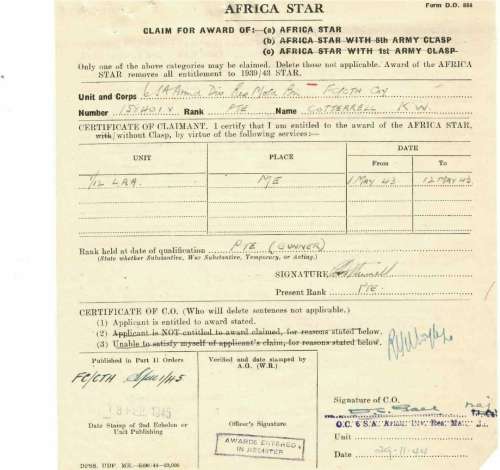 AFRICA STAR
Form D.O. 884
CLAIM FOR AWARD OF:- (a) AFRICA STAR
(b) AFRICA STAR WITH 8th ARMY CLASP
(c) AFRICA STAR WITH 1st ARMY CLASP
Only one of the above categories may be claimed. Delete those not applicable. Award of the AFRICA
STAR removes all entitlement to 1939/43 STAR.
Unit and Corps 6 SA Armd Div Res Bn FC/CTH
Number Rank PTE Name COTTERRELL K W
CERTIFICATE OF CLAIMANT. I certify that I am entitled to the award of the AFRICA STAR,
with/without Clasp, by virtue of the following services:-
UNIT PLACE DATE
From To
1/12 LAA. M/E 1 MAY 43 12 MAY 43
Rank held at date of qualification PTE (GUNNER)
(State whether Substantive, War Substantive, Temporary, or Acting.)
SIGNATURE
Present Rank PTE
CERTIFICATE OF C.O. (Who will delete sentences not applicable.)
(1) Applicant is entitled to award stated.
(2) Applicant is NOT entitled to award claimed, for reasons stated below.
(3) Unable to satisfy myself of applicant's claim, for reasons stated below.
Published in Part II Orders
FC/CTH 1/45
Verified and date stamped by
A.G. (W.R.)
1945
Date Stamp of 2nd Echelon or
Unit Publishing
Officer's Signature
AWARDS ENTERED
IN REGISTER
Signature of C.O.
O.C. 6 S.A. Armd. Div. Res.
Unit
Date 29-11-44